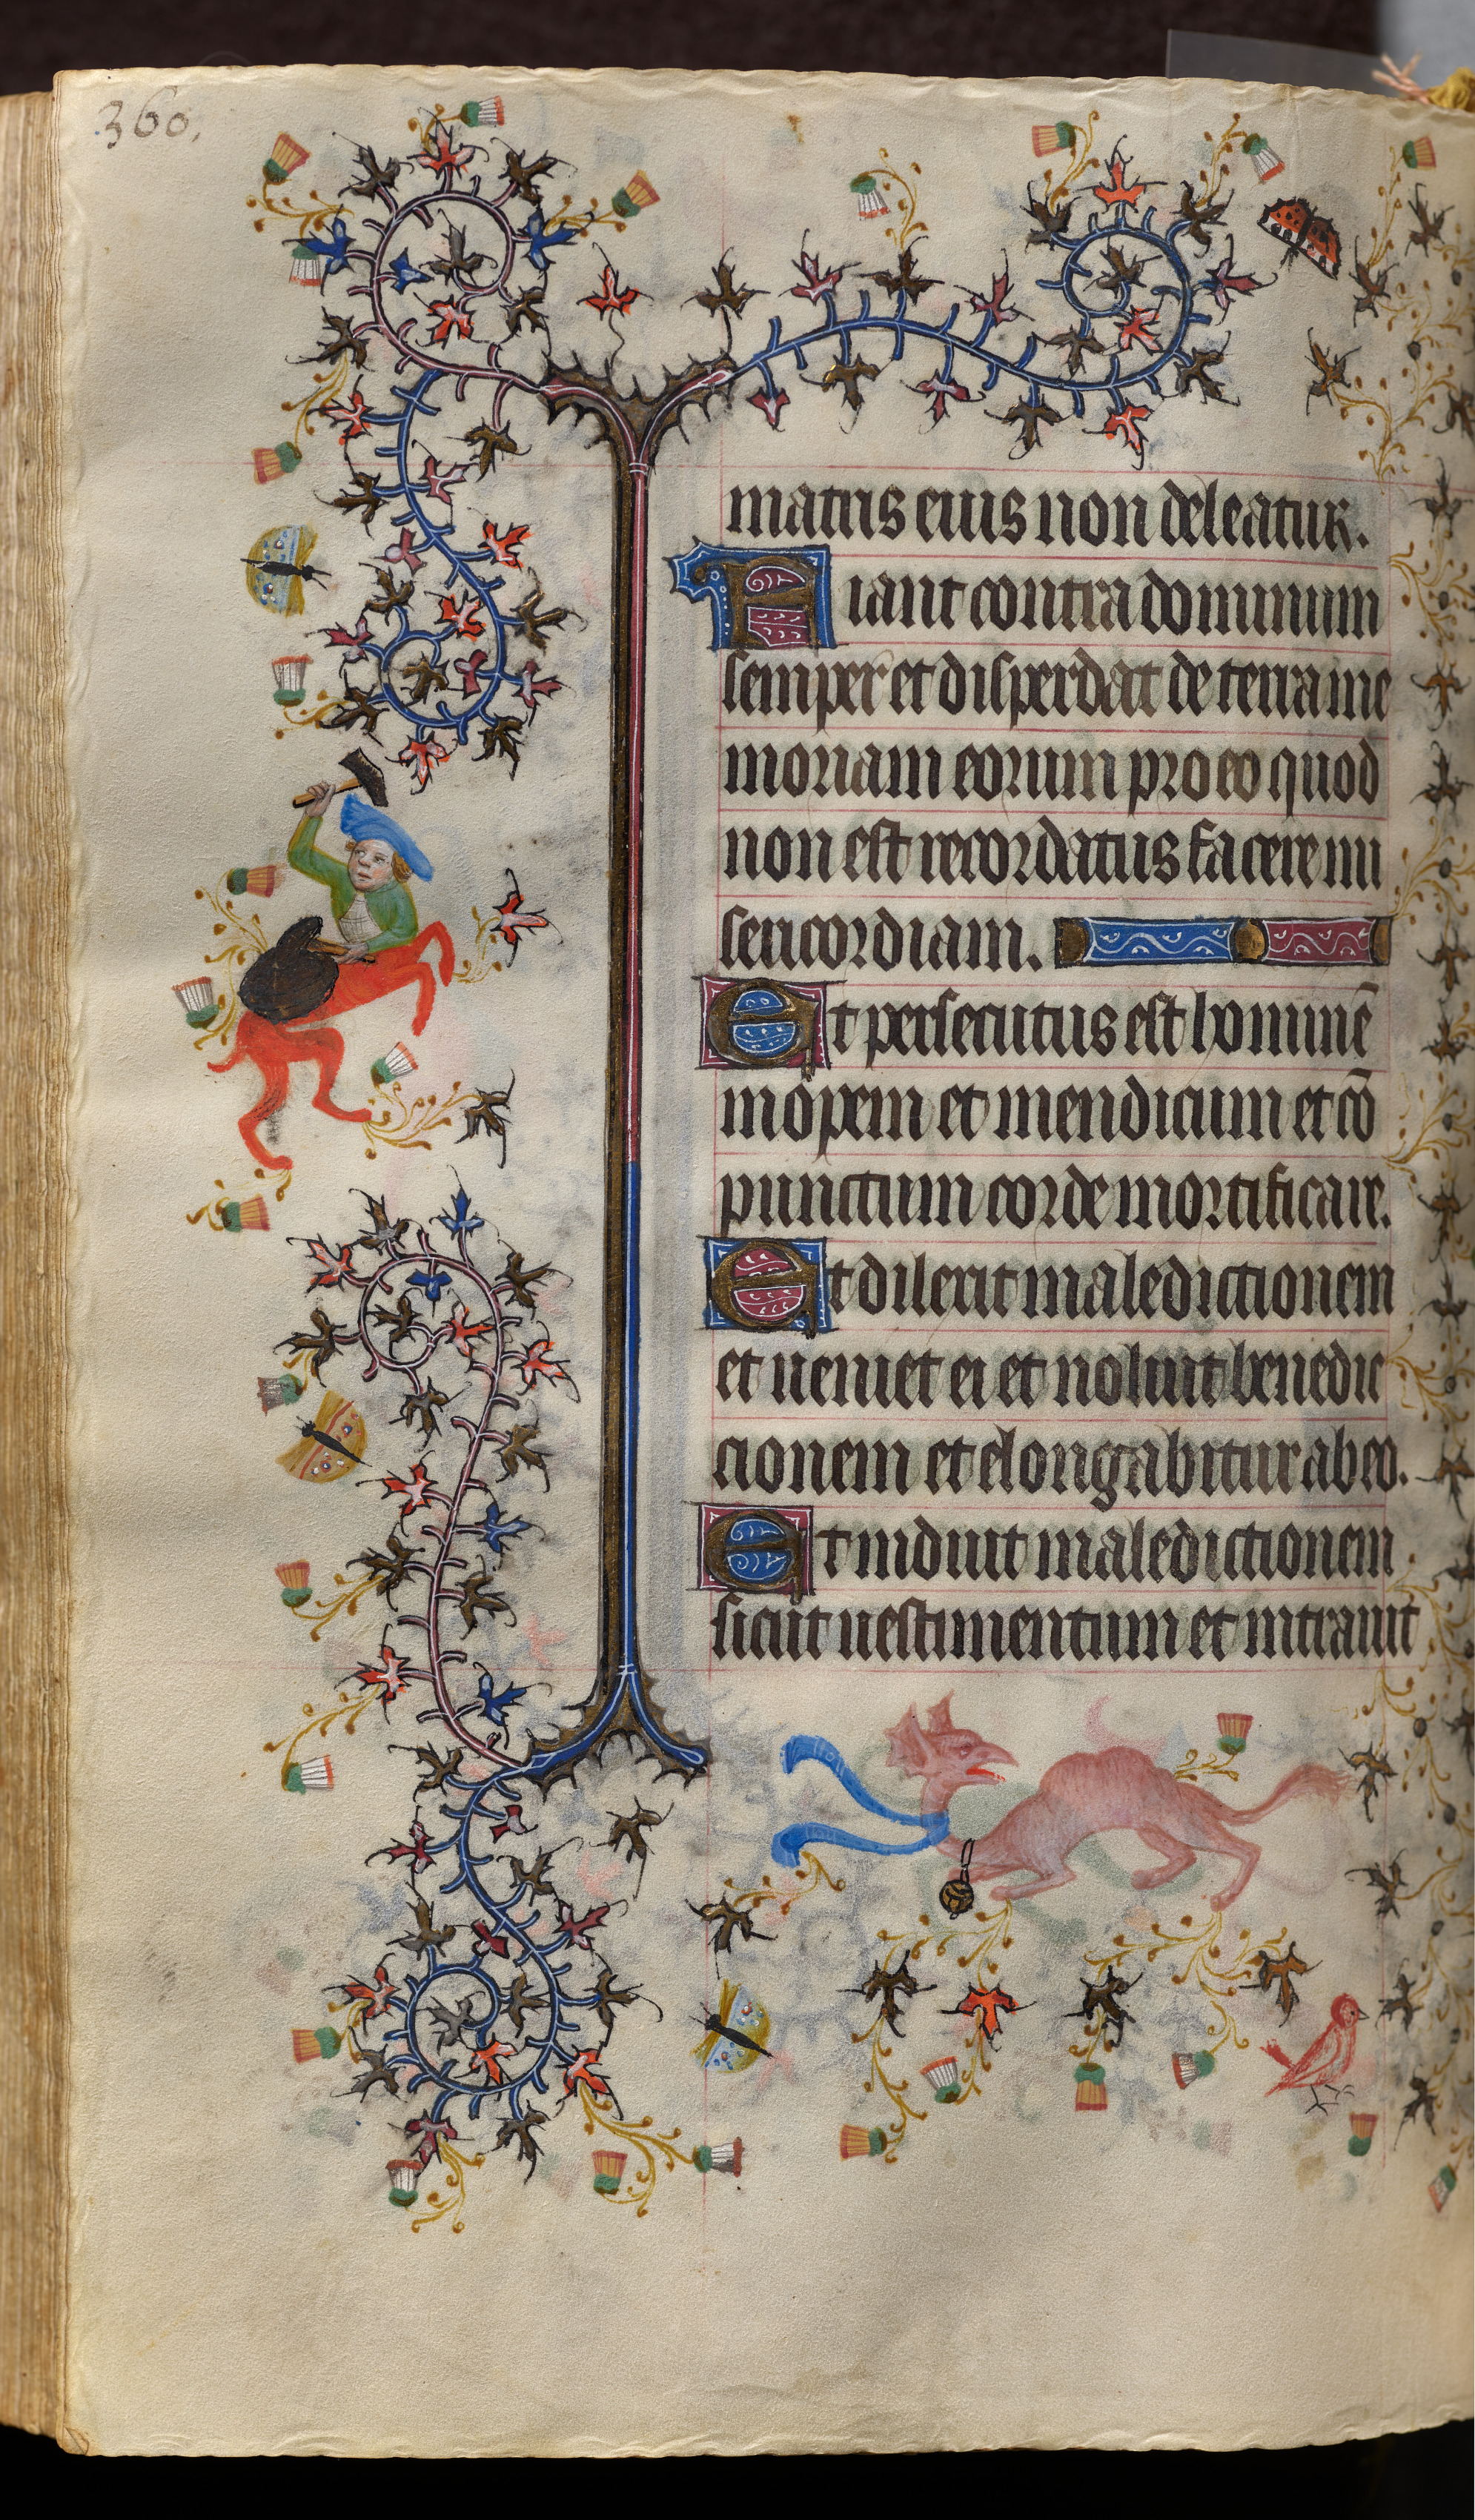 360.
matris eius non deleatur.
Fiant contra dominum
semper et disperdat de terra me
moriam eorum pro eo quod
non est recordatus facere mi
sericordiam.
Et persecutus est hominē
inopem et mendicum et cō
punctum corde mortificare.
Et dilexit maledictionem
et ueniet ei et noluit benedic
cionem et elongabitur ab eo.
Et induit maledictionem
sicut uestimentum et intrauit